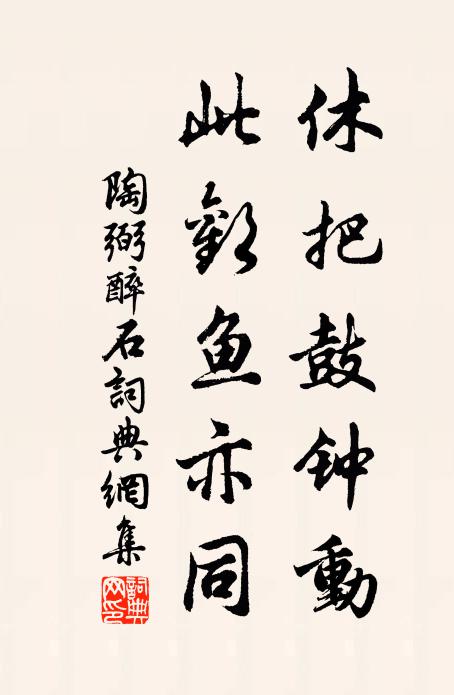 休把鼓钟動
此歡魚亦同
陶弼醉石詞典網集
詞典网印